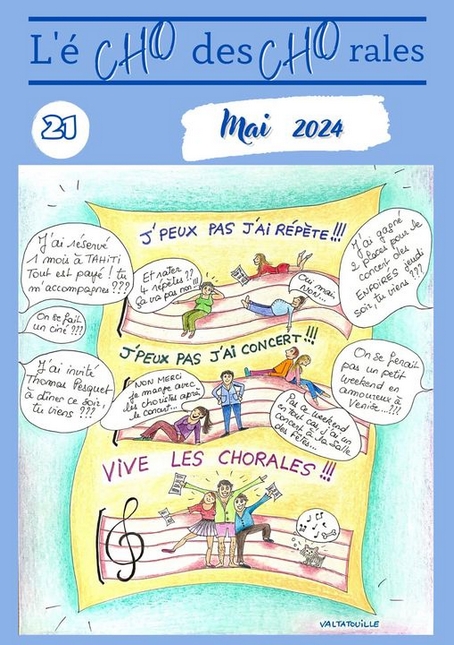 L'é CHO des CHO rales
21
Mai 2024
J'PEUX PAS J'AI RÉPÈTE !!!
J'ai réservé
1 mois à TAHITI
Tout est payé ! tu
m'accompagnes ???
Et rater
4 répètes ??
Ça va pas non !!!
Oui mai
NON...
J'ai gagné
2 places pour le
concert des
ENFOIRÉS jeudi
soir, tu viens ???
On se fait
un ciné ???
J'PEUX PAS J'AI CONCERT !!!
J'ai invité
Thomas Pesquet
à dîner ce soir,
tu viens ???
NON MERCI
je mange avec
les choristes après
le concert...
Pas ce weekend
en tout cas, j'ai un
concert à la salle
des fêtes...
On se ferait
pas un petit
weekend en
amoureux à
Venise...???
VIVE LES CHORALES !!!
VALTATOUILLE